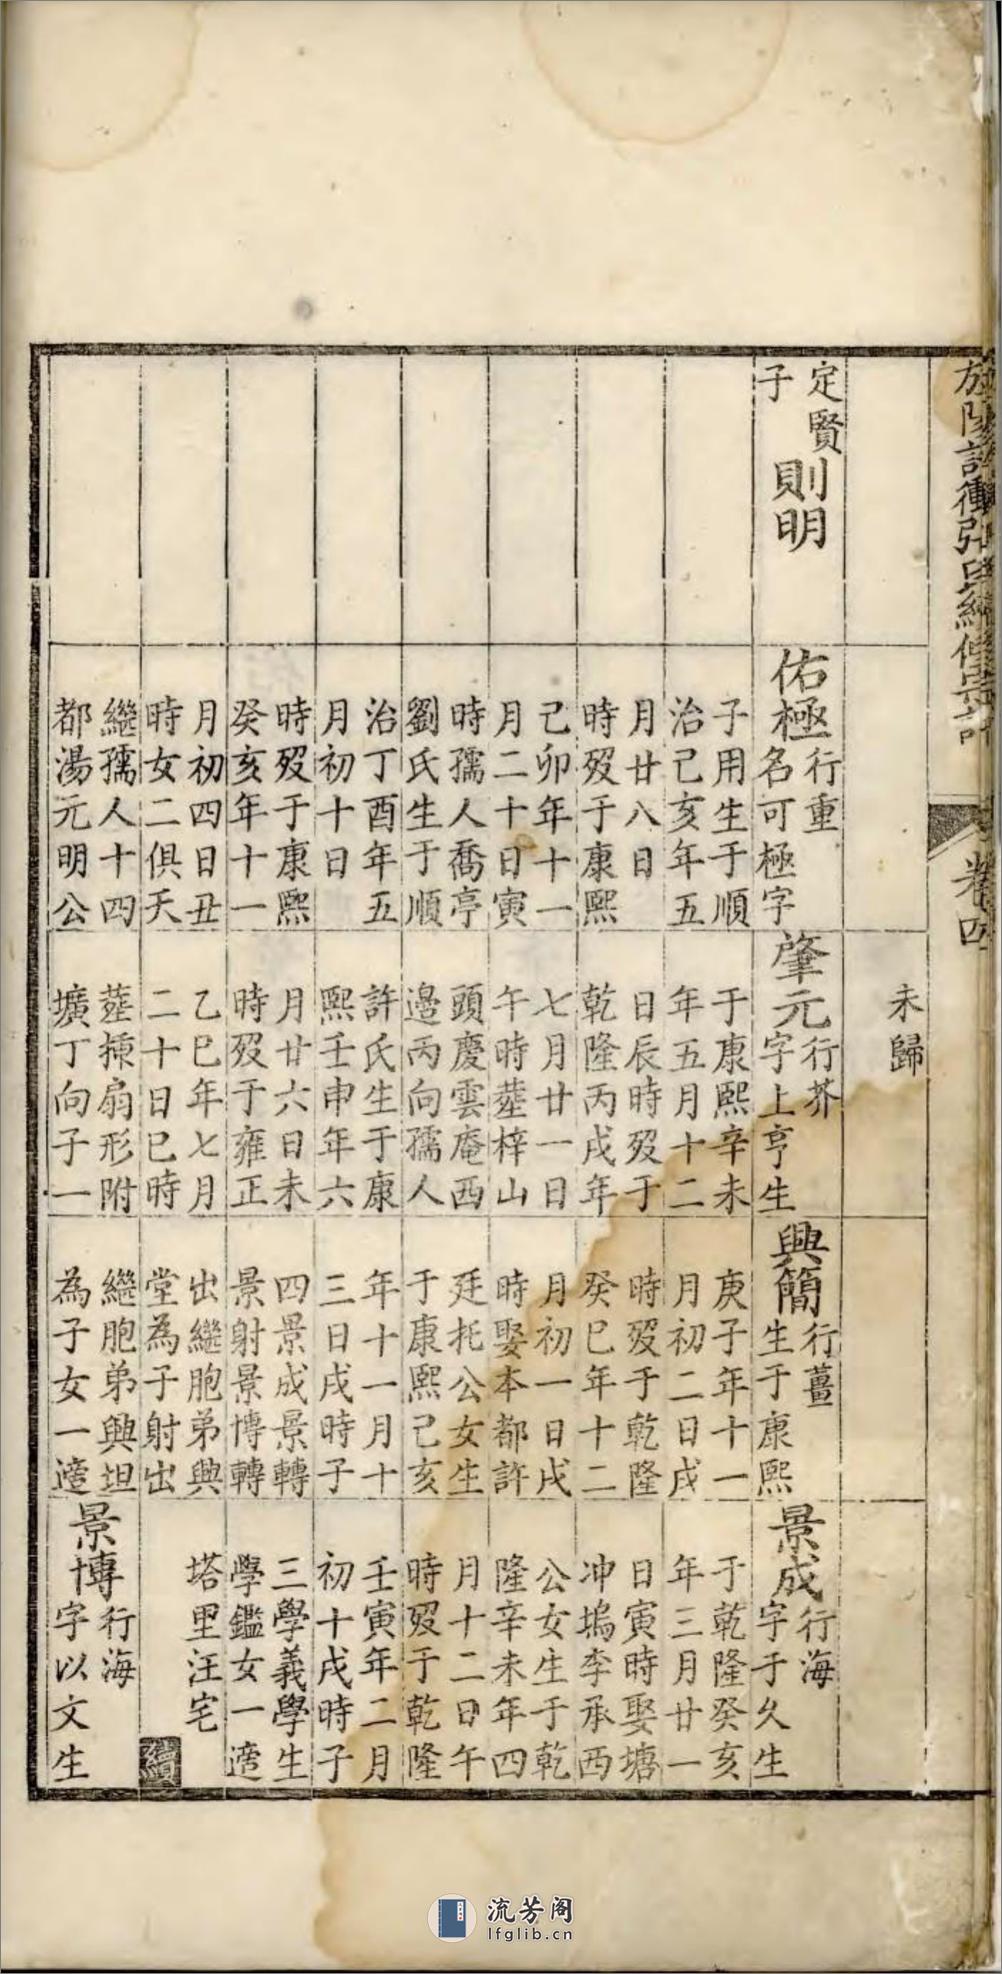 卷四
未歸
定賢
子
則明
佑極
行重
名可極字
子用生于順
治己亥年五
月廿八日
時歿于康熙
己卯年十一
月二十日寅
時孺人喬亭
劉氏生于順
治丁酉年五
月初十日
時歿于康熙
癸亥年十一
月初四日丑
時女二俱夭
繼孺人十四
都湯元明公
肇元
行芥
字上亨生
于康熙辛未
年五月十二
日辰時歿于
乾隆丙戌年
七月廿一日
午時塟梓山
頭慶雲庵西
邉丙向孺人
許氏生于康
熙壬申年六
月廿六日未
時歿于雍正
乙巳年七月
二十日巳時
塟㨂扇形附
壙丁向子一
興簡
行薑
生于康熙
庚子年十一
月初二日戌
時歿于乾隆
癸巳年十二
月初一日戌
時娶本都許
廷托公女生
于康熙己亥
年十一月十
三日戌時子
四景成景轉
景射景博轉
出繼胞弟興
堂為子射出
繼胞弟興坦
為子女一適
景成
行海
字于久生
于乾隆癸亥
年三月廿一
日寅時娶塘
冲塢李承西
公女生于乾
隆辛未年四
月十二日午
時歿于乾隆
壬寅年二月
初十戌時子
三學義學生
學鑑女一適
塔里汪宅
續
景博
行海
字以文生
流芳阁
lfglib.cn